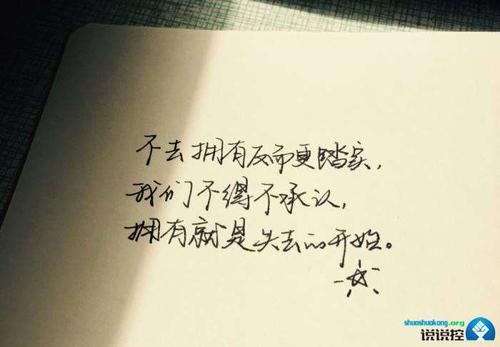 不去拥有反而更踏实，
我们不得不承认，
拥有就是失去的开始。
shuoshuokong.org
说说控